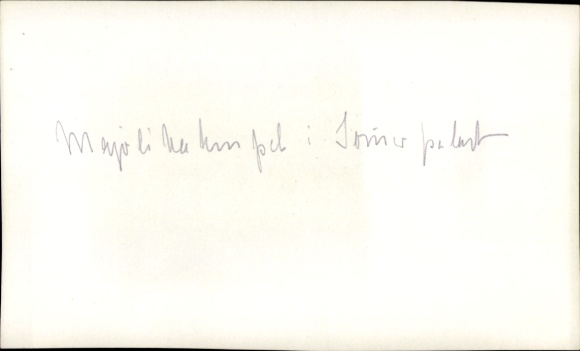 Majolikatempel i. Sommerpalast